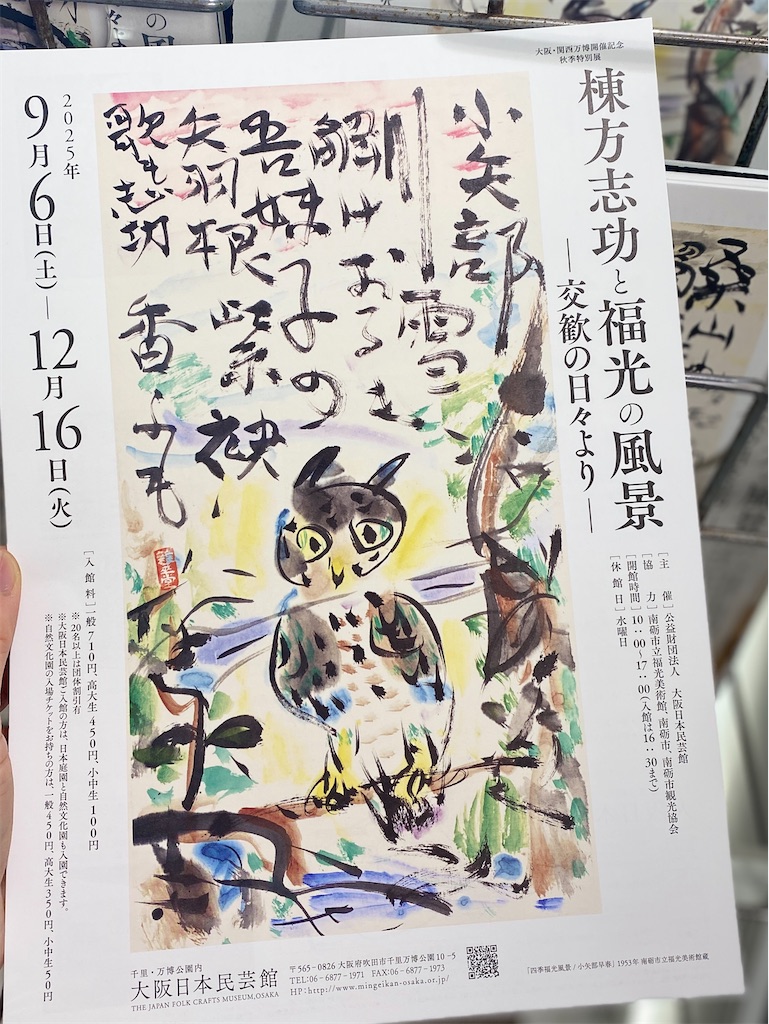 大阪・関西万博開催記念
秋季特別展
棟方志功と福光の風景
―交歓の日々より―
[主催]公益財団法人 大阪日本民芸館
[協力]南砺市立福光美術館、南砺市、南砺市観光協会
[開館時間]10:00〜17:00(入館は16:30まで)
[休館日]水曜日
小矢部
川雪
解けおろし
吾妹子の
矢羽根紫袂
歌志功
香
2025年
9月6日(土)―12月16日(火)
[入館料]一般710円、高大生450円、小中生100円
※20名以上は団体割引有
※大阪日本民芸館ご入館の方は、日本庭園と自然文化園も入園できます。
※自然文化園の入場チケットをお持ちの方は、一般450円、高大生350円、小中生50円
千里・万博公園内
大阪日本民芸館
THE JAPAN FOLK CRAFTS MUSEUM,OSAKA
〒565-0826 大阪府吹田市千里万博公園10-5
TEL:06-6877-1971 FAX:06-6877-1973
HP:http://www.mingeikan-osaka.or.jp/
「四季福光風景/小矢部早春」1953年 南砺市立福光美術館蔵